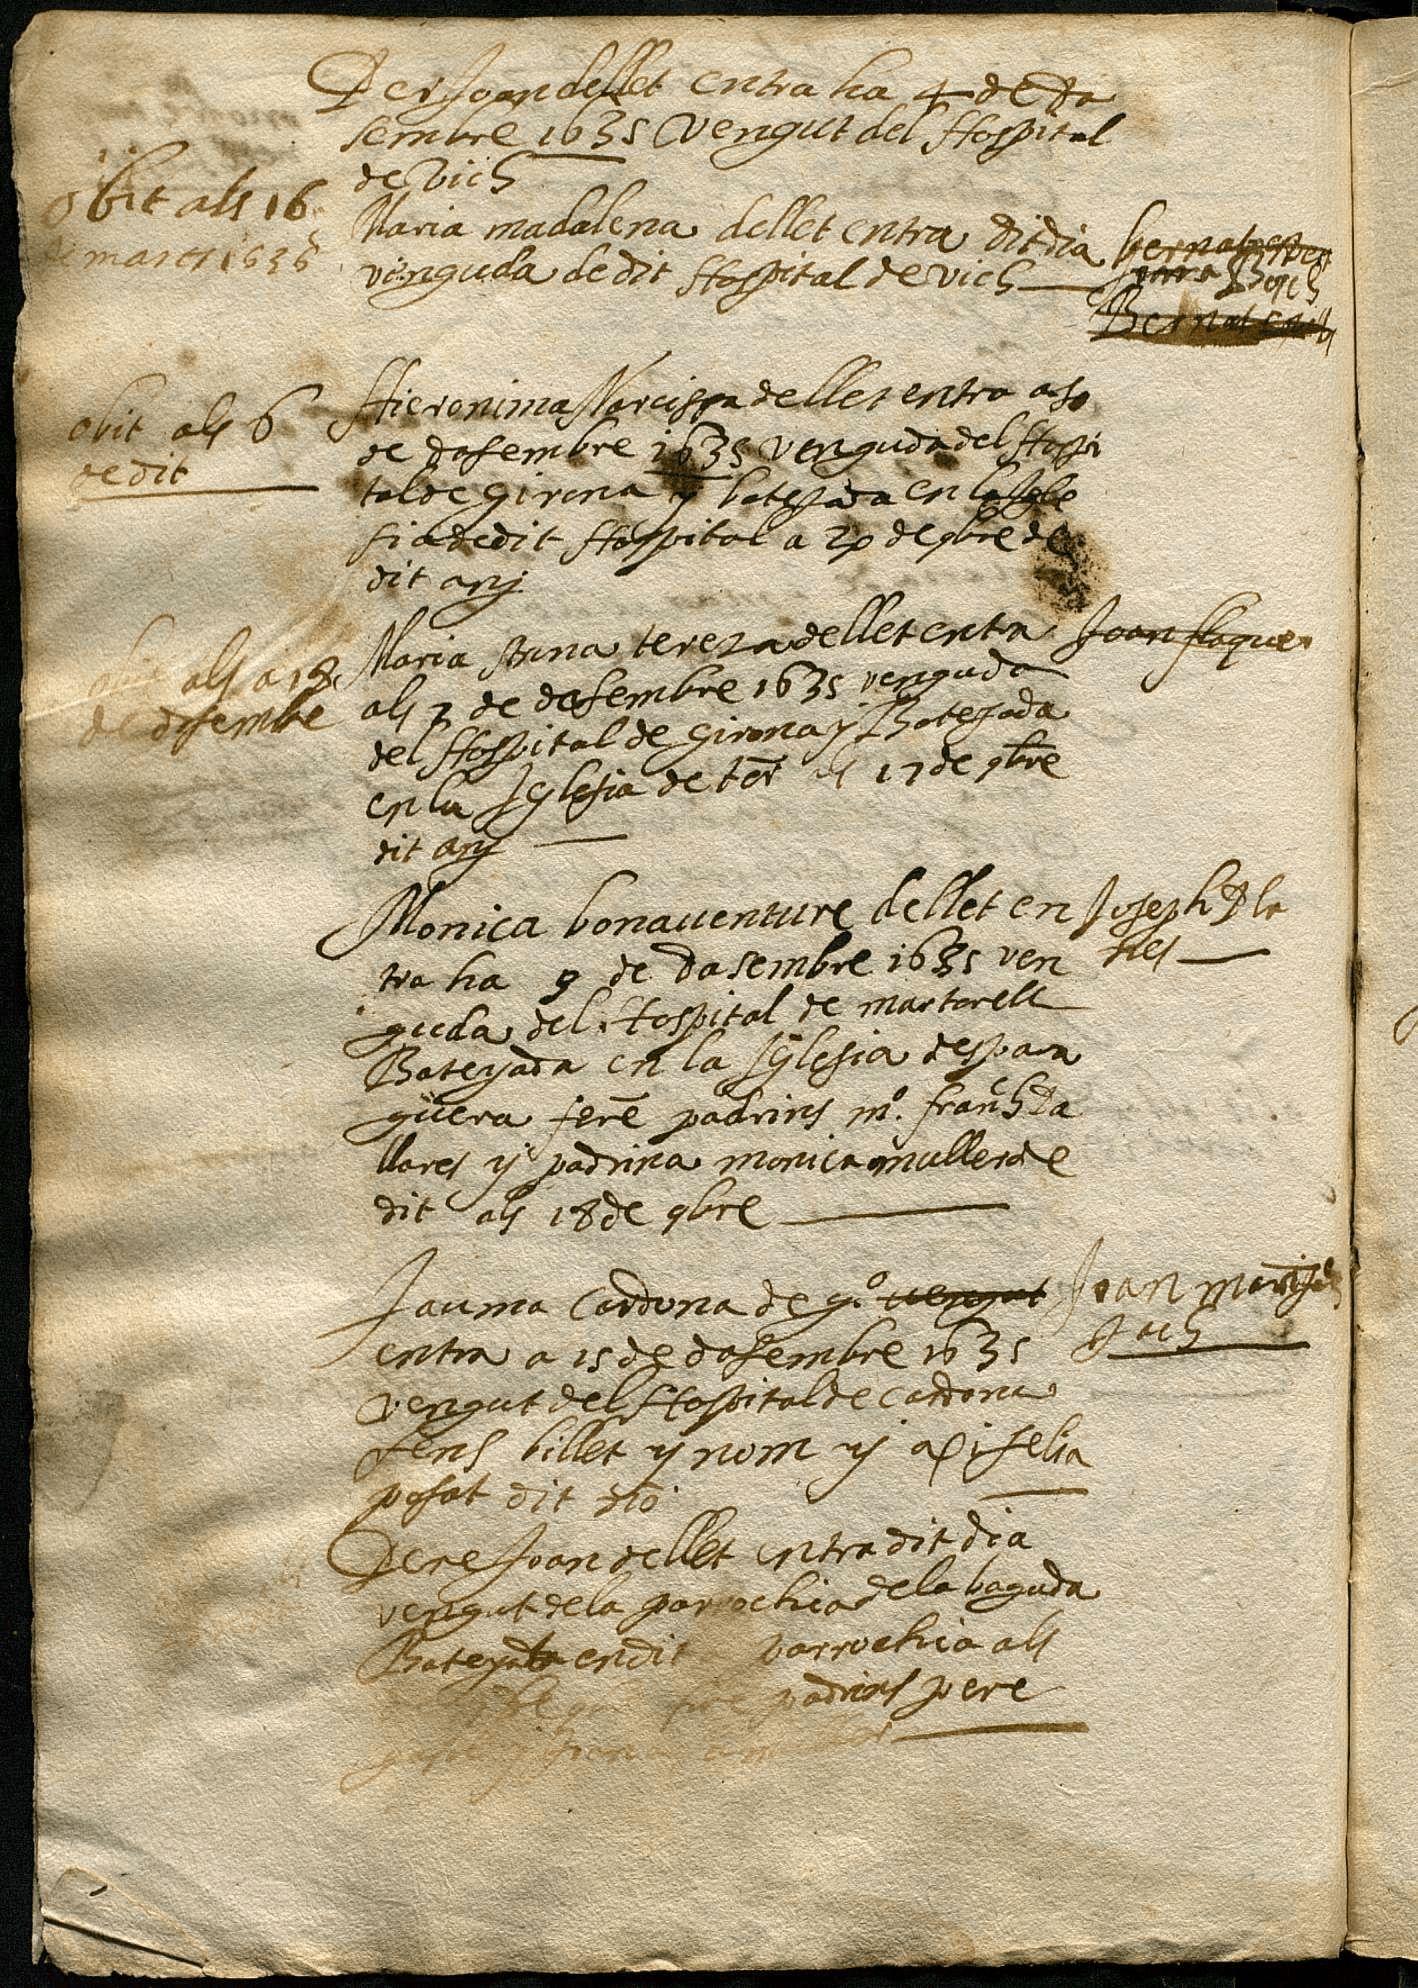 Per Joan dellet entra ha 4 de da
sembre 1635 vengut del Hospital
de vich
obit als 16
de mars 1636
Maria madalena dellet entra dit dia
vinguda de dit Hospital de vich
bernat
Bernat
obit als 6
de dit
Hieronima Narcissa dellet entra a
de dasembre 1635 venguda del Hospi
tal de girona y batejada en la Igle
sia de dit Hospital a 29 de 9bre de
dit any
obit als a 18
de desembre
Maria Anna tereza dellet entra
als 7 de dasembre 1635 venguda
del Hospital de girona y Batejada
en la Iglesia de als 17 de 9bre
dit any
Joan flaquer
Monica bonauenture dellet en
tra ha 9 de dasembre 1635 ven
guda del Hospital de martorell
Bateyada en la Iglesia despara
guera fere padrins mº. franch Pa
llares y padrina monica muller de
dit als 18 de 9bre
Joseph Pla
nes
Jauma Cardona de gº. vengut
entra a 15 de dasembre 1635
vengut del Hospital de cardona
sens billet y nom y axi seli a
posat dit nō
Joan
Pere Joan dellet entra dit dia
vengut de la parrochia de la baguda
Bateyat en dit parrochia als
fore padrins pere